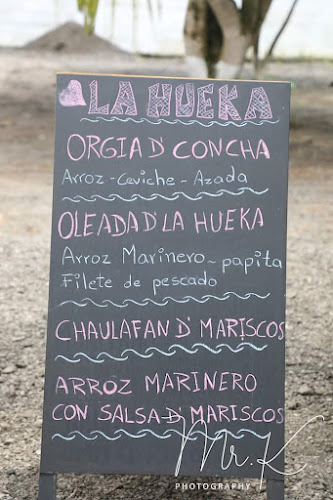 LA HUEKA
ORGIA D' CONCHA
Arroz - Ceviche - Azada
OLEADA D LA HUEKA
Arroz Marinero - papita
Filete de pescado
CHAULAFAN D' MARISCOS
ARROZ MARINERO
CON SALSA D' MARISCOS
Mr. K
PHOTOGRAPHY